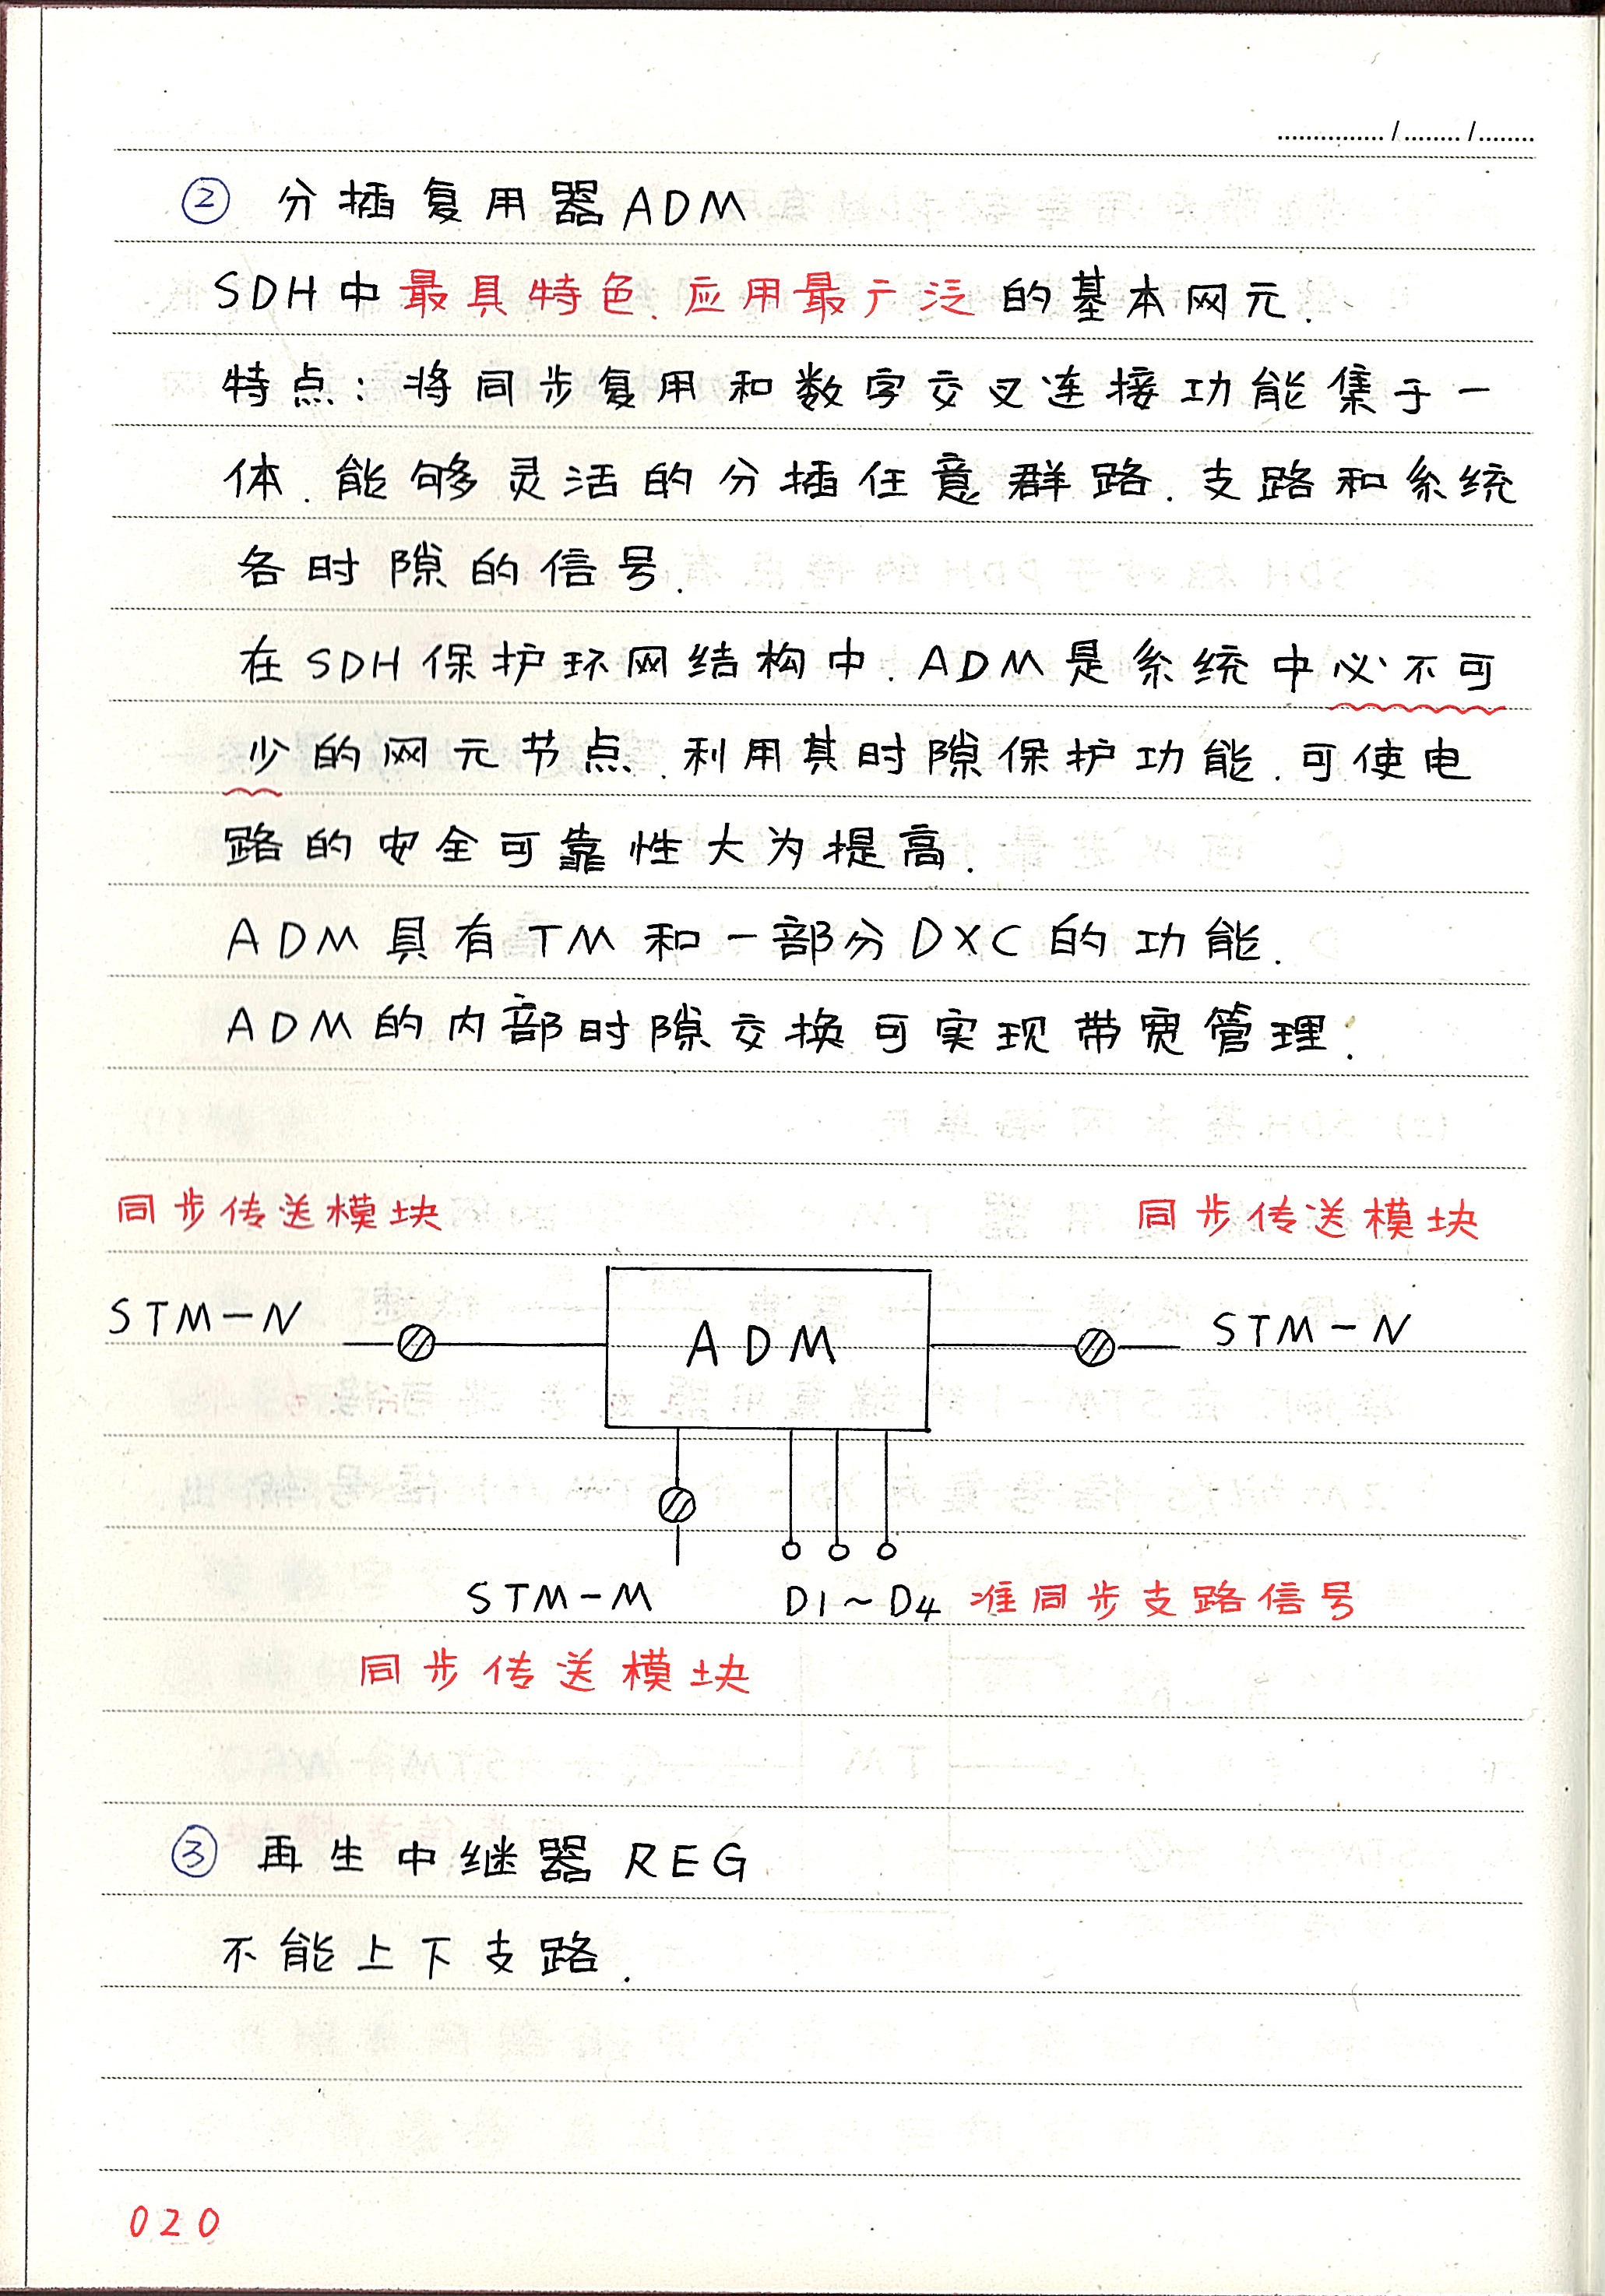 ............... / ........ / ........
② 分插复用器ADM
SDH中最具特色、应用最广泛的基本网元.
特点:将同步复用和数字交叉连接功能集于一
体.能够灵活的分插任意群路.支路和系统
各时隙的信号.
在SDH保护环网结构中.ADM是系统中必不可
少的网元节点.利用其时隙保护功能.可使电
路的安全可靠性大为提高.
ADM具有TM和一部分DXC的功能.
ADM的内部时隙交换可实现带宽管理.
同步传送模块 同步传送模块
STM-N ADM STM-N
STM-M D1~D4 准同步支路信号
同步传送模块
③ 再生中继器 REG
不能上下支路.
020